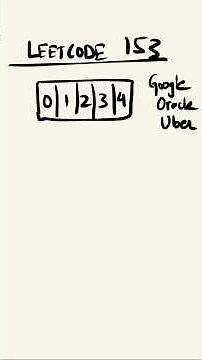 LEETCODE 153
0 1 2 3 4
Google
Oracle
Uber